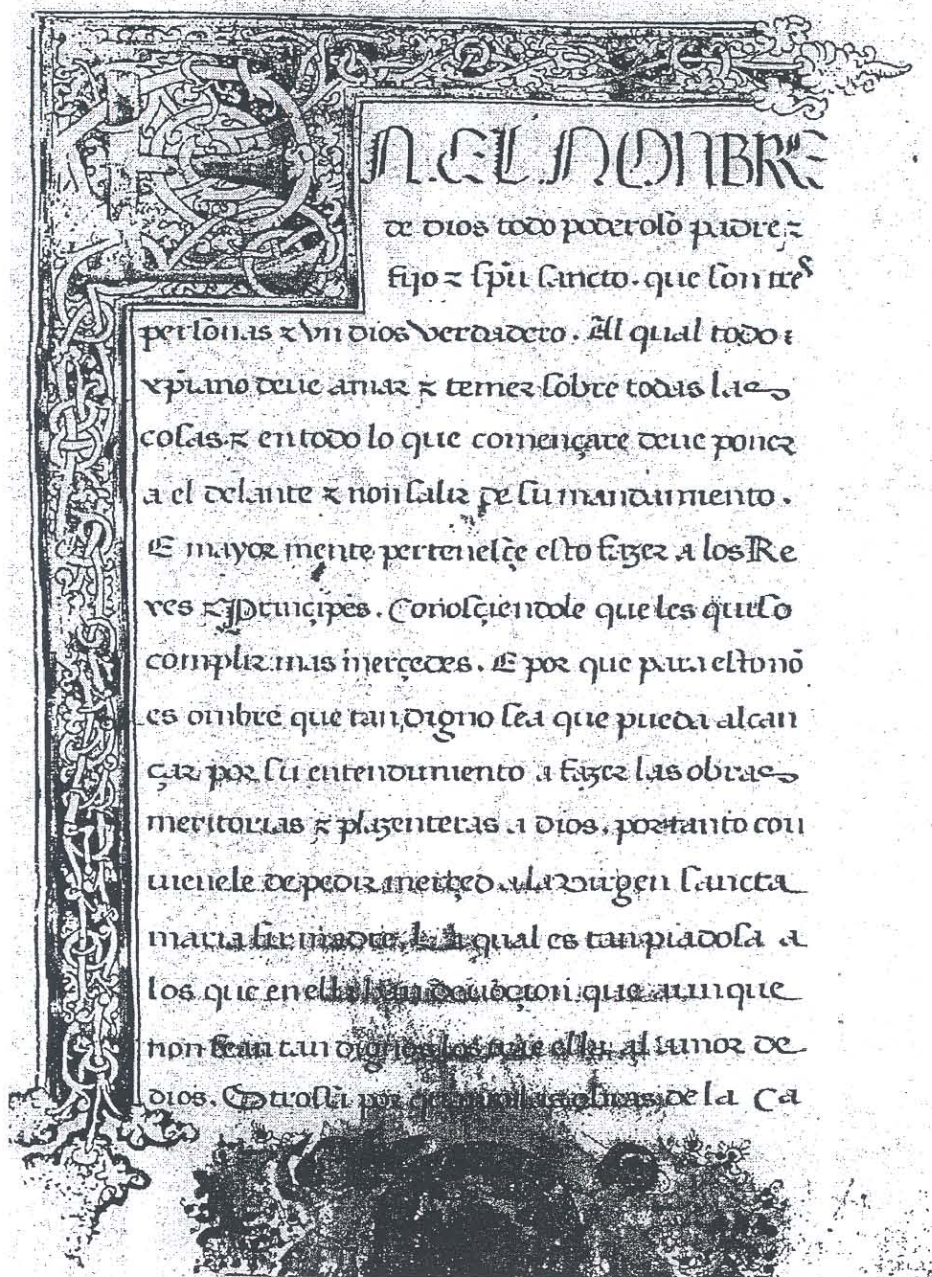 EN.EL.NONBRE
de dios todo poderoso padre ⁊
fijo ⁊ sp̄u sancto. que son tres
personas ⁊ vn dios verdadero. Al qual todo
xp̄iano deue amar ⁊ temer sobre todas las
cosas. ⁊ en todo lo que començare deue poner
a el delante ⁊ non salir de su mandamiento.
E mayor mente pertenesçe esto fazer a los Re
yes ⁊ Prinçipes. Conosçiendole que les quiso
complir mas merçedes. E por que para esto nō
es ombre que tan digno sea que pueda alcan
çar por su entendimiento a fazer las obras
meritorias ⁊ plazenteras a dios. por tanto con
uienele de pedir merçed a la virgen sancta
maria su madre. La qual es tan piadosa a
los que en ella han deuoçion. que aunque
non sean tan dignos los trae ella al amor de
dios. Otrosi por obras de la Ca